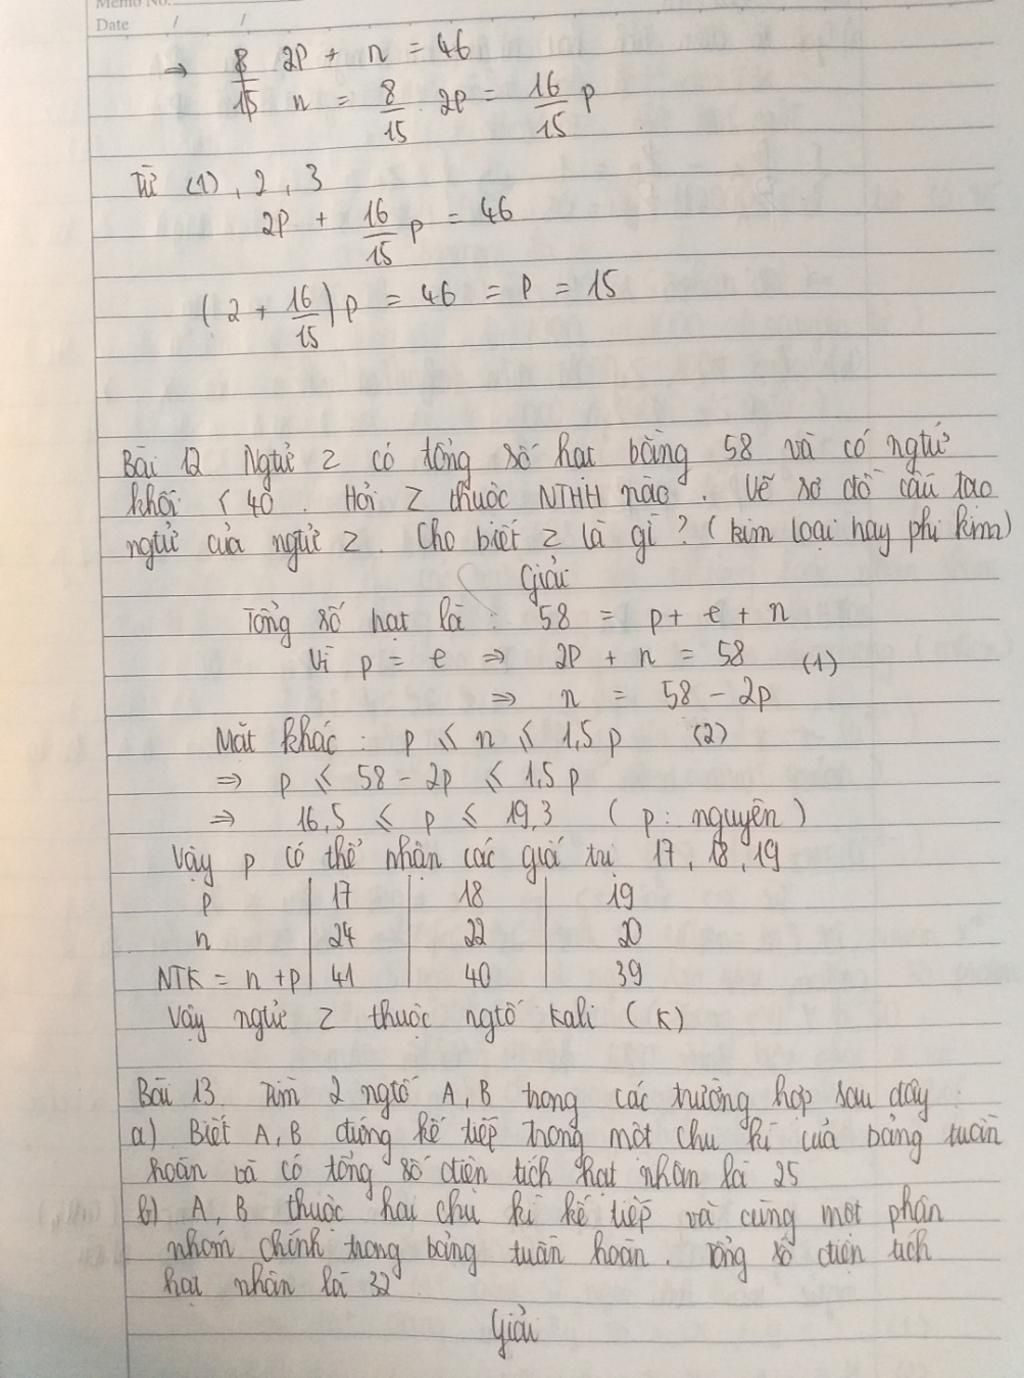 Memo No.
Date / /
⇒ 8/15 2p + n = 46
n = 8/15 2p = 16/15 p
Từ (1), 2, 3
2p + 16/15 p = 46
(2 + 16/15) p = 46 = p = 15
Bài 12 Ngtử Z có tổng số hạt bằng 58 và có ngtử
khối < 40. Hỏi Z thuộc NTHH nào. Vẽ sơ đồ cấu tạo
ngtử của ngtử Z. Cho biết Z là gì? (kim loại hay phi kim)
Giải
Tổng số hạt là: 58 = p + e + n
Vì p = e ⇒ 2p + n = 58 (1)
⇒ n = 58 - 2p
Mặt khác: p ≤ n ≤ 1,5 p (2)
⇒ p ≤ 58 - 2p ≤ 1,5 p
⇒ 16,5 ≤ p ≤ 19,3 (p: nguyên)
Vậy p có thể nhận các giá trị 17, 18, 19
p 17 18 19
n 24 22 20
NTK = n + p 41 40 39
Vậy ngtử Z thuộc ngtố Kali (K)
Bài 13. Tìm 2 ngtố A, B trong các trường hợp sau đây:
a) Biết A, B đứng kế tiếp trong một chu kì của bảng tuần
hoàn và có tổng số điện tích hạt nhân là 25
b) A, B thuộc hai chu kì kế tiếp và cùng một phân
nhóm chính trong bảng tuần hoàn. Tổng số điện tích
hạt nhân là 32
Giải